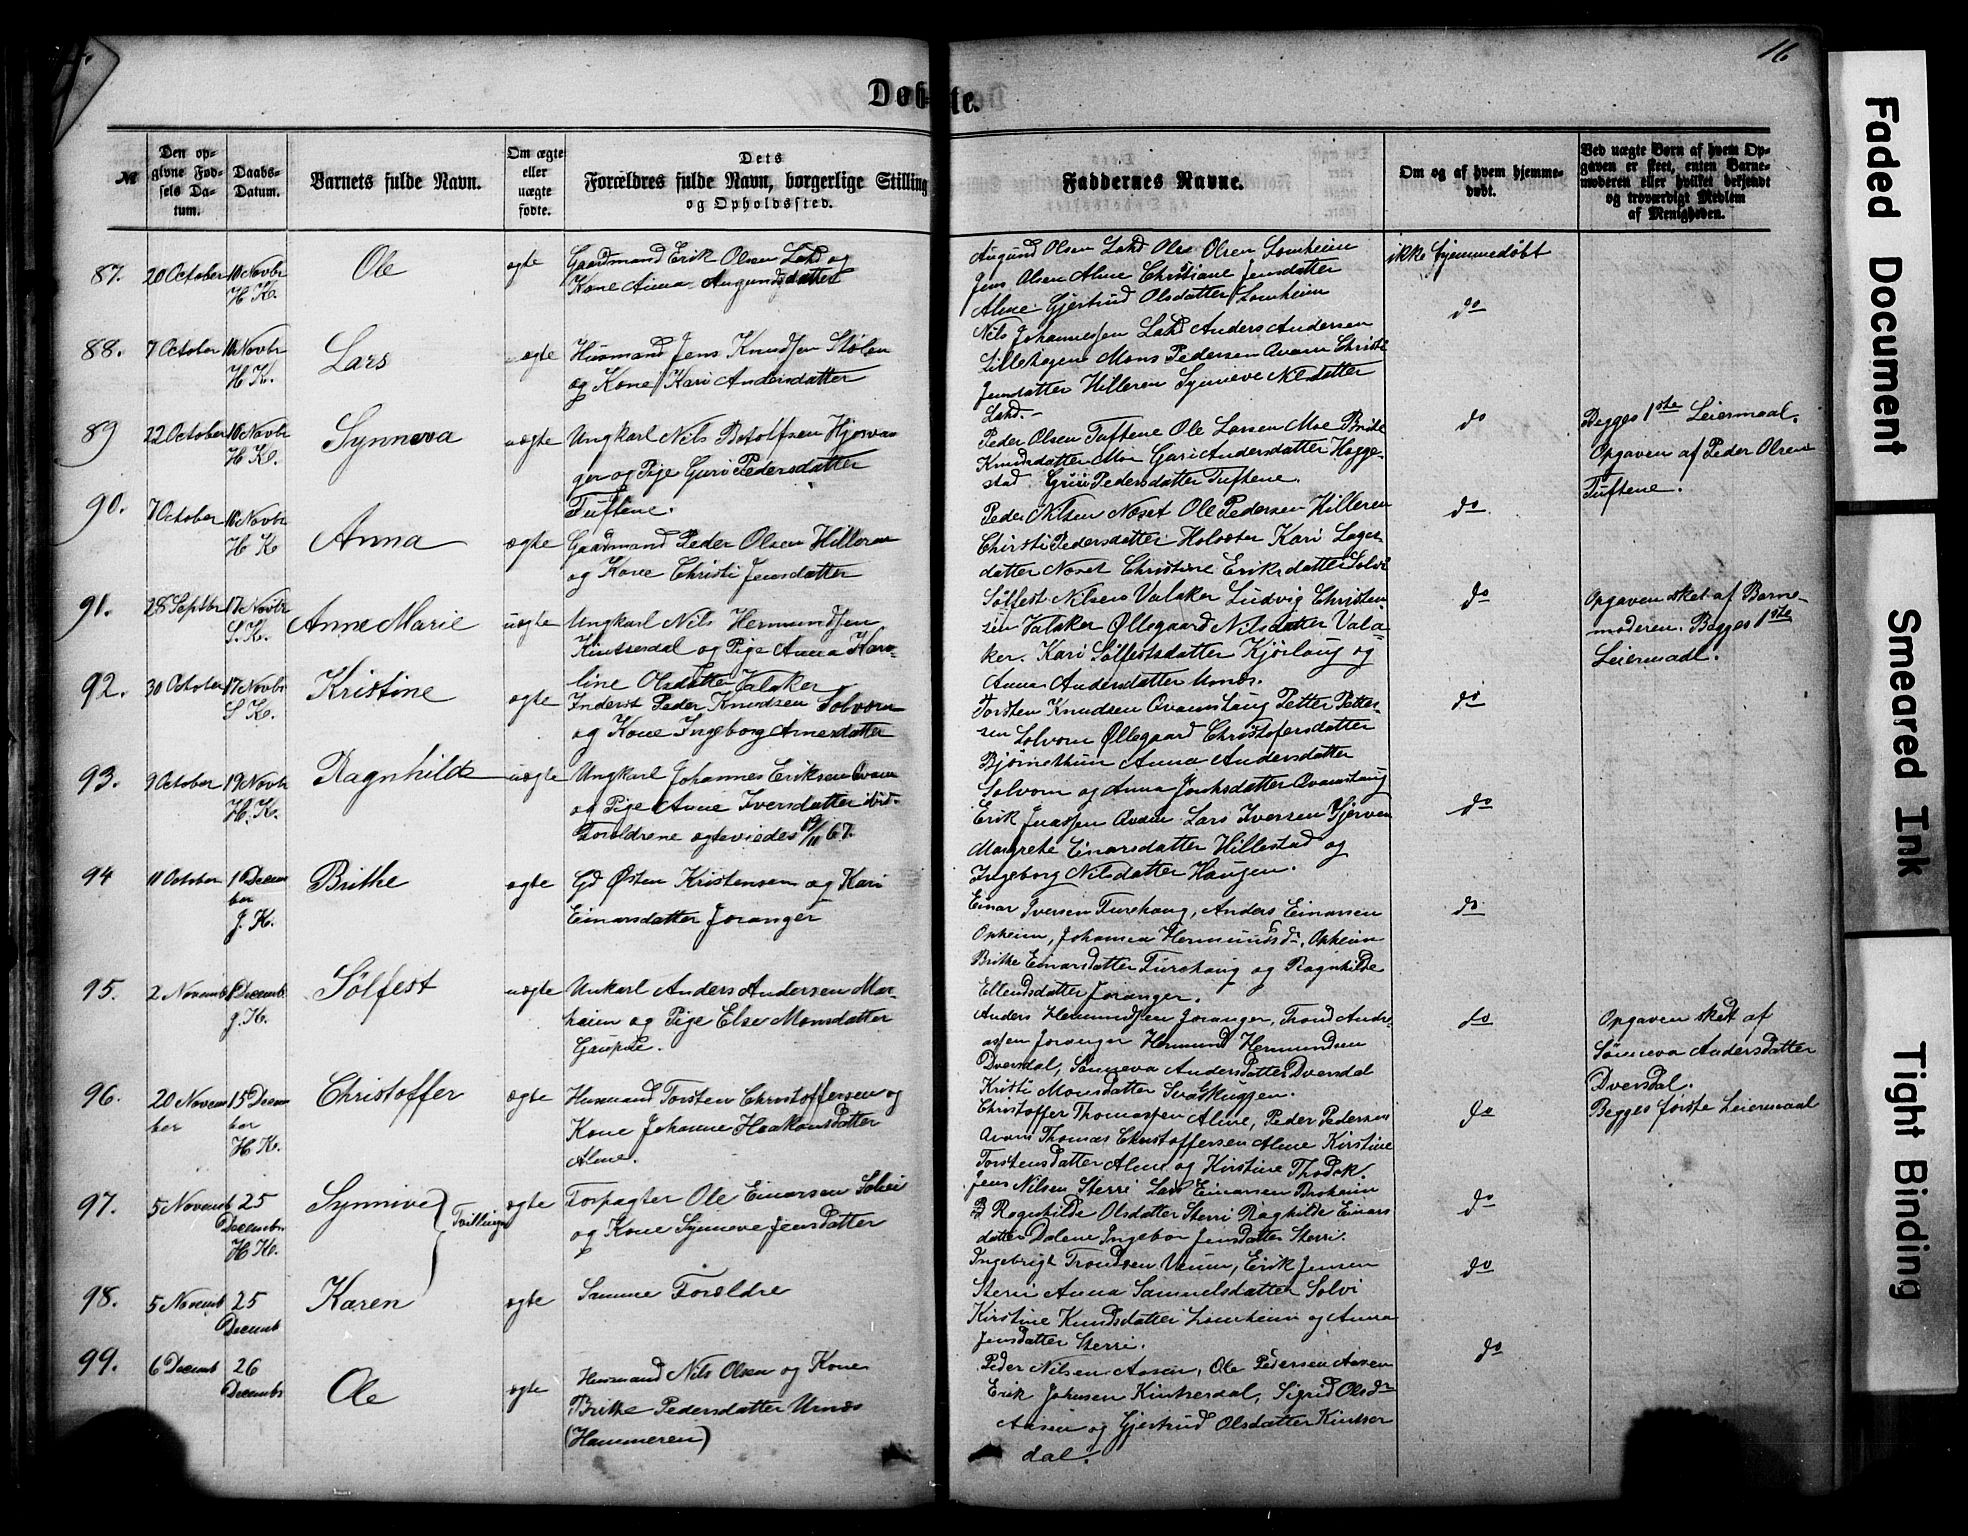 16
Døbte.
№
Den opgivne Fødsels Datum.
Daabs-Datum.
Barnets fulde Navn.
Om ægte eller uægte fødte.
Dets Forældres fulde Navn, borgerlige Stilling og Opholdssted.
Faddernes Navne.
Om og af hvem hjemmedøbt.
Ved uægte Børn af hvem Opgaven er skeet, enten Barnemoderen eller hvilket bekjendt og troværdigt Medlem af Menigheden.
87. 20 October 10 Novbr H. K. Ole ægte
Gaardmand Erik Olsen Lahd og
Kone Anna Augundsdatter
Augund Olsen Lahd Ole Olsen Lomheim
Jens Olsen Alme Christiane Jensdatter
Alme Gjertrud Olsdatter Lomheim
ikke hjemmedøbt
88. 7 October 10 Novbr H. K. Lars ægte
Husmand Jens Knudsen Stølen
og Kone Kari Andersdatter
Nils Johannessen Lahd Anders Andersen
Lillehagen Mons Pedersen Qvam Christi
Jensdatter Hilleren Synneve Nilsdatter
Lahd.
do
89 22 October 10 Novbr H. K. Synneva uægte
Ungkarl Nils Botolfsen Hjorvan
ger og Pige Guri Pedersdatter
Tuftene.
Peder Olsen Tuftene Ole Larsen Moe Brite
Knudsdatter Moe Gari Andersdatter Hogge-
stad Guri Pedersdatter Tuftene.
do
Begges 1ste Leiermaal.
Opgaven af Peder Olsen
Tuftene.
90. 7 October 10 Novbr H. K. Anna ægte
Gaardmand Peder Olsen Hilleren
og Kone Christi Jensdatter
Peder Nilsen Næset Ole Pedersen Hilleren
Christi Pedersdatter Kari
datter Næset Christine Eriksdatter Solvi
do
91. 28 Septbr 17 Novbr S. K. Anne Marie uægte
Ungkarl Nils Hermundsen
Kintserdal og Pige Anna Karo-
line Olsdatter Valaker
Sølfest Nilsen Valaker Ludvig Christen
sen Valaker Øllegaard Nilsdatter Vala-
ker. Kari Sølfestsdatter Kjørlaug og
Anna Andersdatter
do
Opgaven sket af Barne-
moderen. Begges 1ste
Leiermaal.
92. 30 October 17 Novbr S. K. Kristine ægte
Inderst Peder Knudsen Solvorn
og Kone Ingeborg Arnesdatter
Torsten Knudsen Qvamshaug Petter Petter-
sen Solvorn Øllegaard Christofersdatter
Bjørnethun Anna Andersdatter
Solvorn og Anna Qvamshaug
do
93. 9 October 19 Novbr H. K. Ragnhilde uægte
Ungkarl Johannes Eriksen Qvam
og Pige Anne Iversdatter ibid.
Forældrene ægteviedes 19/11 67.
Erik Qvam Lars Iversen Kjerven
Margrete Einarsdatter Hillestad og
Ingeborg Nilsdatter Haugen.
do
94 11 October 1 Decem
ber
J. K. Brithe ægte
Gd Østen Kristensen og Kari
Einarsdatter Joranger
Einar Iversen Turehaug, Anders Einarsen
Opheim, Johanna Hermunds dr, Opheim
Brithe Einarsdatter Turehaug og Ragnhilde
Ellendsdatter Joranger.
do
95. 2 Novemb 1 Decemb. J. K. Sølfest uægte
Unkarl Anders Andersen Mar-
heim og Pige Else Monsdatter
Gaupne.
Anders Hermundsen Joranger, Trond Andre-
assen Joranger Hermund Hermundsen
Dversdal, Sønneva Andersdatter Dversdal
Kristi Monsdatter Svaskuggen.
do
Opgaven sket af
Sønneva Andersdatter
Dversdal.
Begges første Leiermaal
96. 20 Novem
ber 15 Decem
ber
H. K. Christoffer ægte
Husmand Torsten Christoffersen og
Kone Johanne Haakonsdatter
Alme.
Christoffer Thomassen Alme, Peder Pedersen
Qvam Thomas Christoffersen Alme Kirstine
Torstensdatter Alme og Kirstine
do
97. 5 Novemb 25
Decembr
H. K. Synnive } Tvillinger ægte
Forpagter Ole Einarsen Solvi
og Kone Synneve Jensdatter
Jens Nilsen Sterri Lars Einarsen Broheim
Ragnhilde Olsdatter Sterri Raghilde Einars
datter Dalene Ingebor Jensdatter Sterri.
do
98. 5 Novemb 25
Decemb Karen ægte
Samme Forældre
Ingebrigt Trondsen Venum, Erik Jensen
Sterri Anna Samuelsdatter Solvi
Kirstine Knudsdatter Lomheim og Anna
Jensdatter Sterri.
do
99. 6 Decemb 26
Decembr Ole ægte
Husmand Nils Olsen og Kone
Brithe Pedersdatter Urnæs
(Hammeren)
Peder Nilsen Aasen, Ole Pedersen Aasen
Erik Johnsen Kintserdal, Sigrid Olsdr
Aasen og Gjertrud Olsdatter Kintser
dal.
do
Faded Document
Smeared Ink
Tight Binding